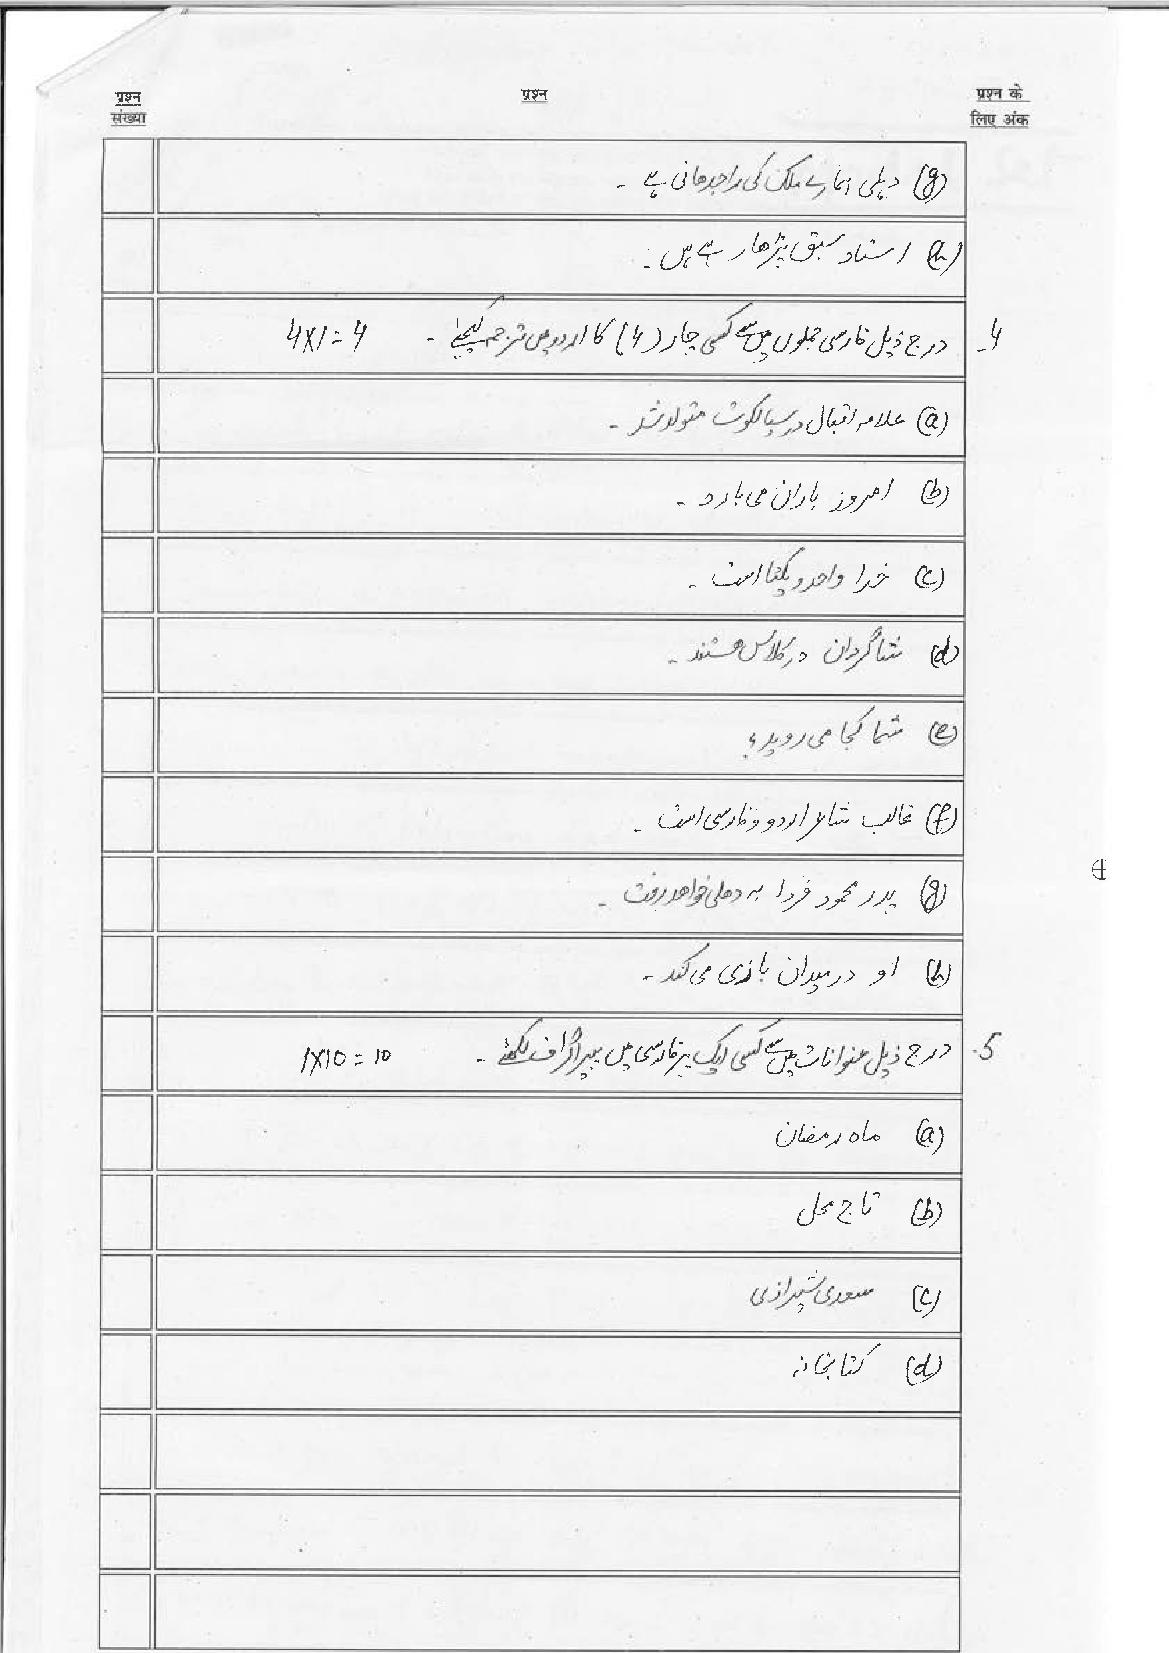 प्रश्न संख्या
प्रश्न
प्रश्न के लिए अंक
(g) دہلی ہمارے ملک کی راجدھانی ہے ۔
(h) استاد سبق پڑھا رہے ہیں ۔
4۔ درج ذیل فارسی جملوں میں سے کسی چار (4) کا اردو میں ترجمہ کیجئے ۔ 4x1=4
(a) علامہ اقبال در سیالکوٹ متولد شد ۔
(b) امروز باران می بارد ۔
(c) خدا واحد و یکتا است ۔
(d) شاگردان در کلاس هستند ۔
(e) شما کجا می روید؟
(f) غالب شاعر اردو و فارسی است ۔
(g) پدر محمود فردا به دهلی خواهد رفت ۔
(h) او در میدان بازی می کند ۔
5. درج ذیل عنوانات میں سے کسی ایک پر فارسی میں پیراگراف لکھئے ۔ 1x10=10
(a) ماہ رمضان
(b) تاج محل
(c) سعدی شیرازی
(d) کتابخانہ